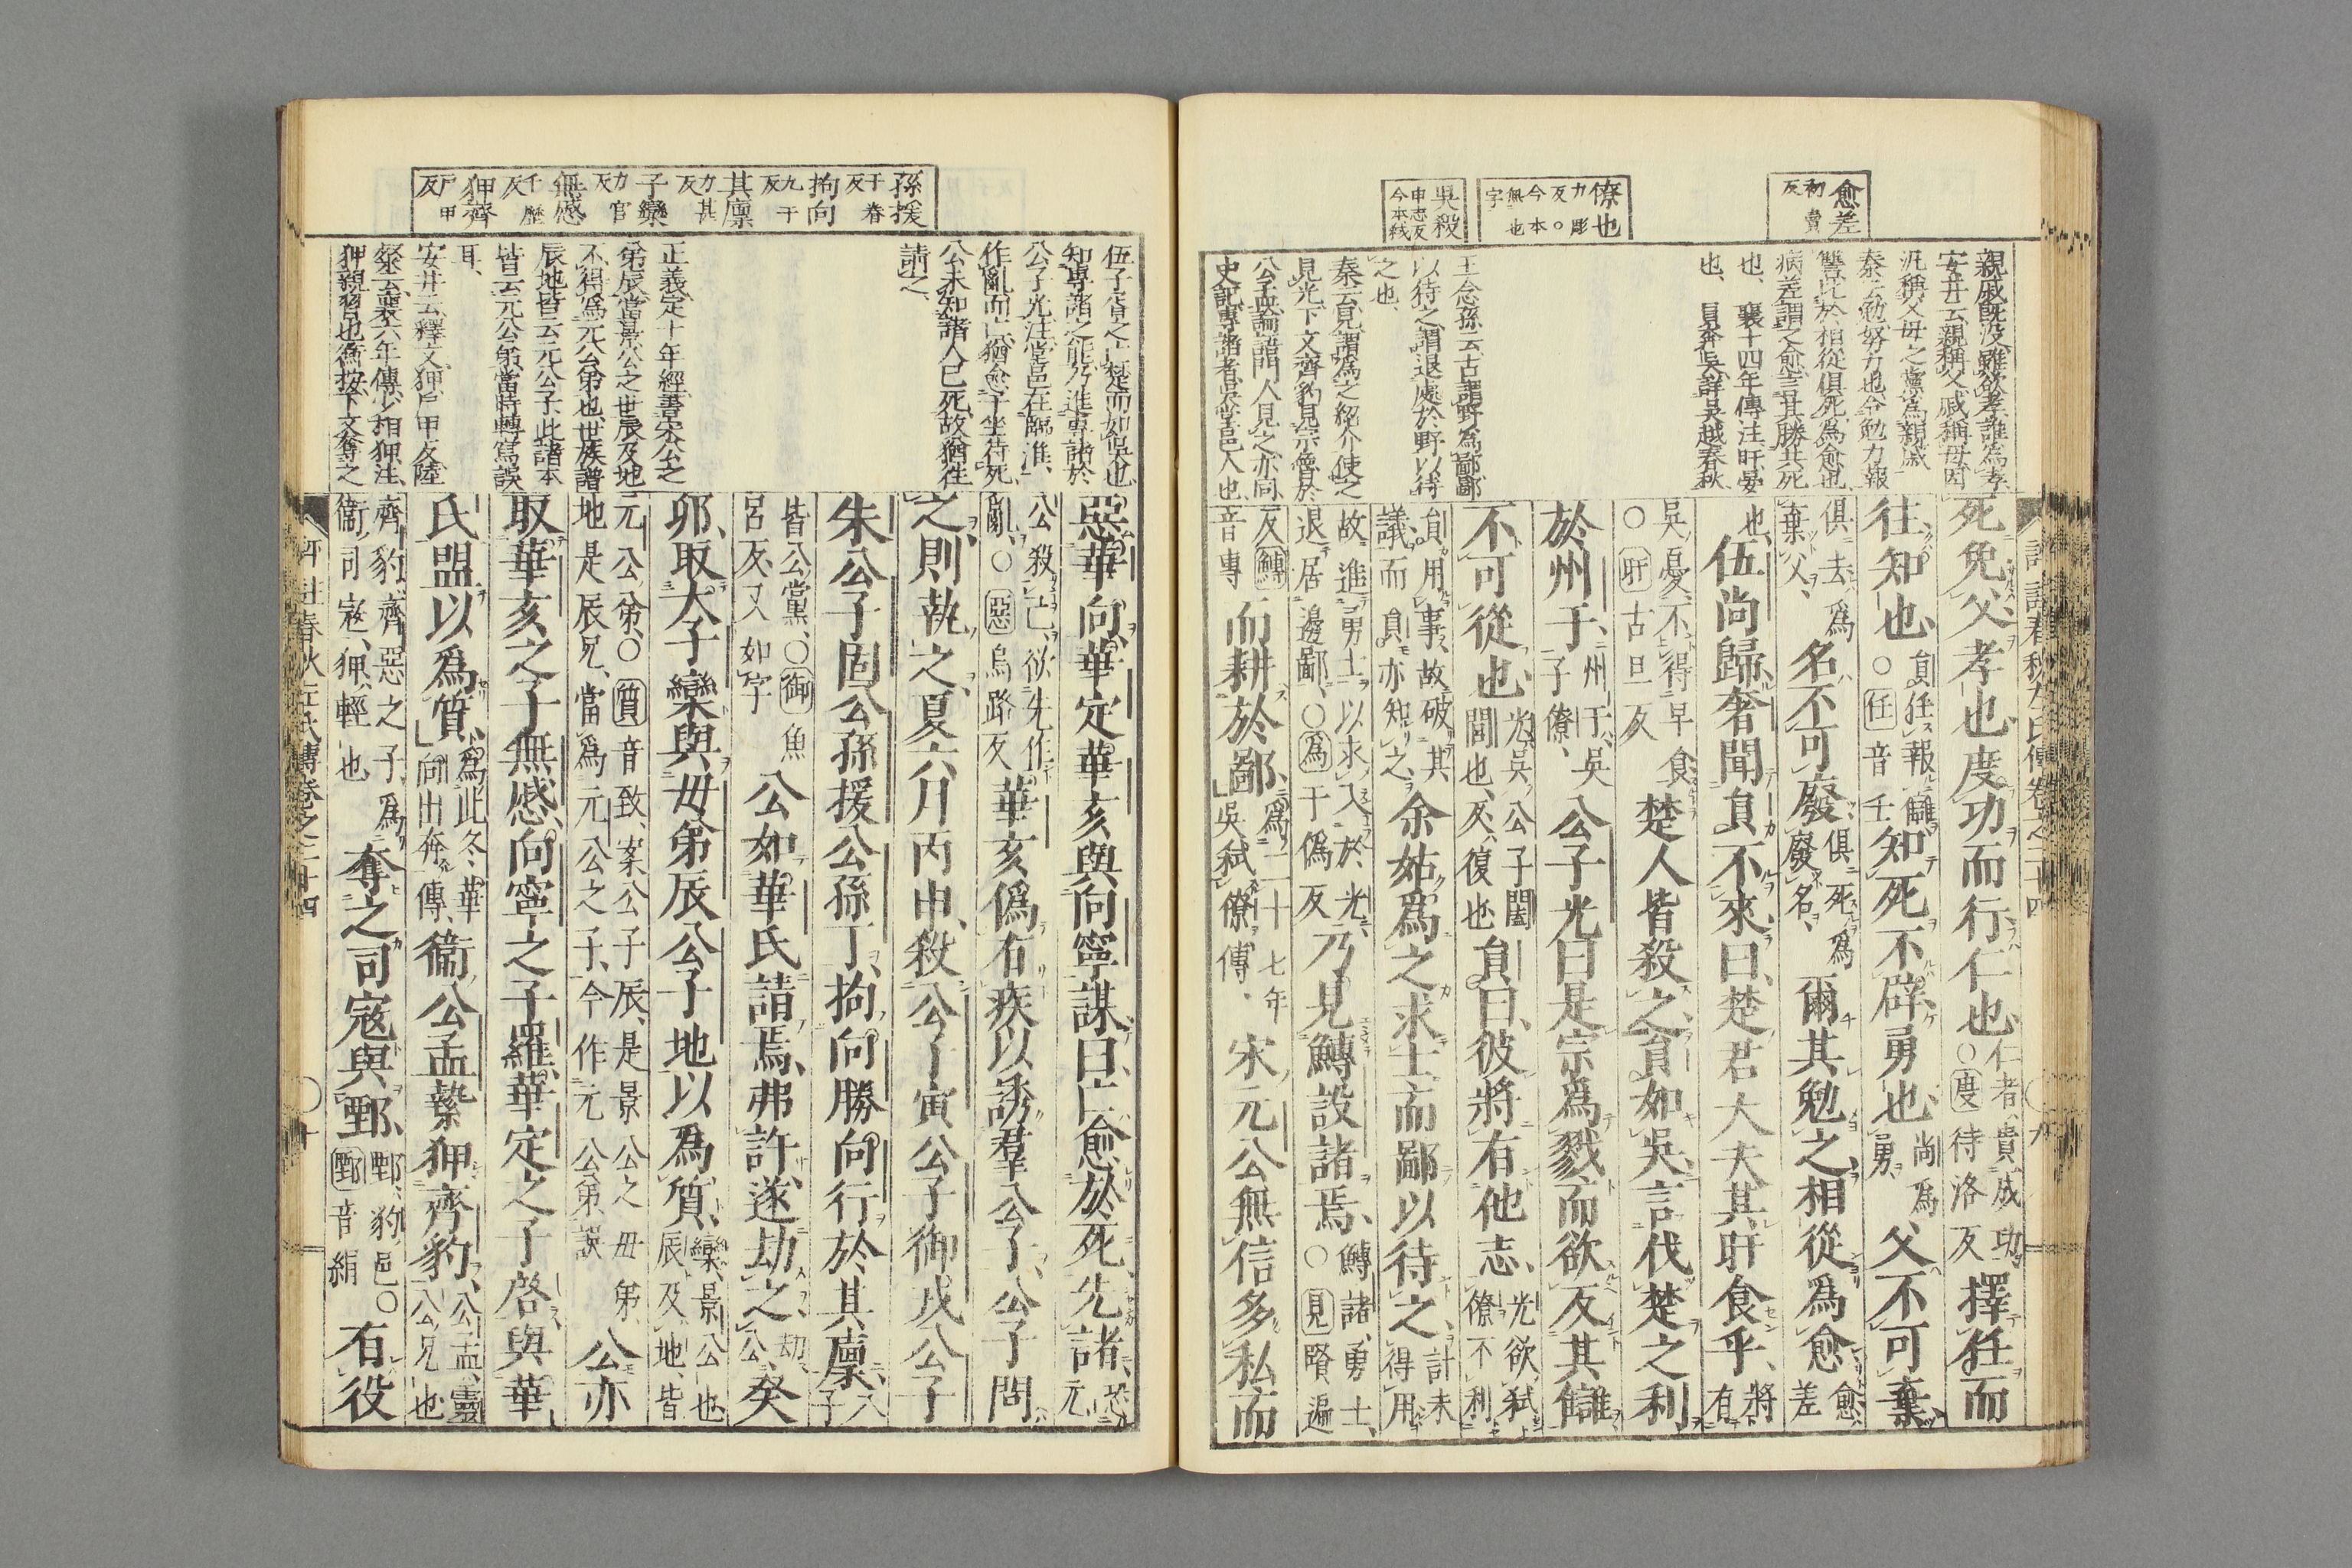 愈差
初賣
反
僚也
力彫
反○
今本
無也
字
吳殺
申志反
今本弒
親戚既没雖欲孝誰為孝
安井云親稱父戚稱母因
汎稱父母之黨為親戚
秦云勉努力也令勉力報
讐比於相從俱死為愈也
病差謂之愈言其勝共死
也、襄十四年傳注旰晏
也、員奔吳詳吳越春秋
王念孫云古謂野為鄙鄙
以待之謂退處於野以待
之也、
秦云見謂為之紹介使之
見光下文齊豹見宗魯於
公孟論語門人見之亦同
史記專諸者吳堂邑人也
評註春秋左氏傳卷之二十四
九
死免父孝也度功而行仁也仁者貴成功○度待洛反擇任而
往知也員任報讎○任音壬知死不辟勇也尚為勇父不可棄
俱去為棄父名不可廢俱死為廢名爾其勉之相從為愈愈差
也伍尚歸奢聞員不來曰楚君大夫其旰食乎將有
吳憂不得早食○旰古旦反楚人皆殺之員如吳言伐楚之利
於州于州于吳子僚公子光曰是宗為戮而欲反其讎
不可從也光吳公子闔閭也反復也員曰彼將有他志光欲弒僚不利
員用事故破其議而員亦知之余姑為之求士而鄙以待之計未得用
故進勇士以求入於光退居邊鄙○為于偽反乃見鱄設諸焉鱄諸勇士○見賢遍
反鱄音專而耕於鄙為二十七年吳弒僚傳宋元公無信多私而
孫援
于眷
反
拘向
九于
反
其廩
力甚
反
子欒
力官
反
無慼
千歷
反
狎齊
戶甲
反
伍子胥之亡楚而如吳也
知專諸之能乃進專諸於
公子光注堂邑在臨淮、
作亂而亡猶愈于坐待死
公未知諸人已死故猶往
請之、
正義定十年經書宋公之
弟辰當景公之世辰及地
不得為元公弟也世族譜
辰地皆云元公子此諸本
皆云元公弟當時轉寫誤
耳、
安井云釋文狎戶甲反陸
粲云襄六年傳少相狎注、
狎親習也衡按下文奪之
惡華向華定華亥與向寧謀曰亡愈於死先諸恐元
公殺己欲先作亂○惡烏路反華亥偽有疾以誘羣公子公子問
之則執之夏六月丙申殺公子寅公子御戎公子
朱公子固公孫援公孫丁拘向勝向行於其廩八子
皆公黨○御魚呂反又如字公如華氏請焉弗許遂劫之劫公癸
卯取大子欒與毋弟辰公子地以為質欒景公也辰及地皆
元公弟○質音致案公子辰是景公之毋弟地是辰兄當為元公之子今作元公弟誤公亦
取華亥之子無慼向寧之子羅華定之子啓與華
氏盟以為質為此冬華向出奔傳衞公孟縶狎齊豹公孟靈公兄也
齊豹齊惡之子為衞司寇狎輕也奪之司寇與鄄鄄豹邑○鄄音絹有役
評註春秋左氏傳卷之二十四
十